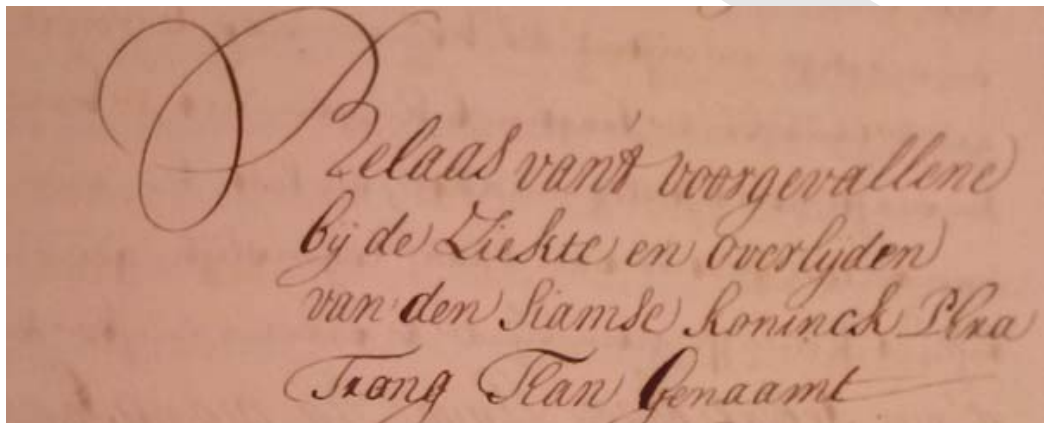 Relaas vant voorgevallene
bij de Ziekte en overlijden
van den Siamse koninck Phra
Trong Than Genaamt